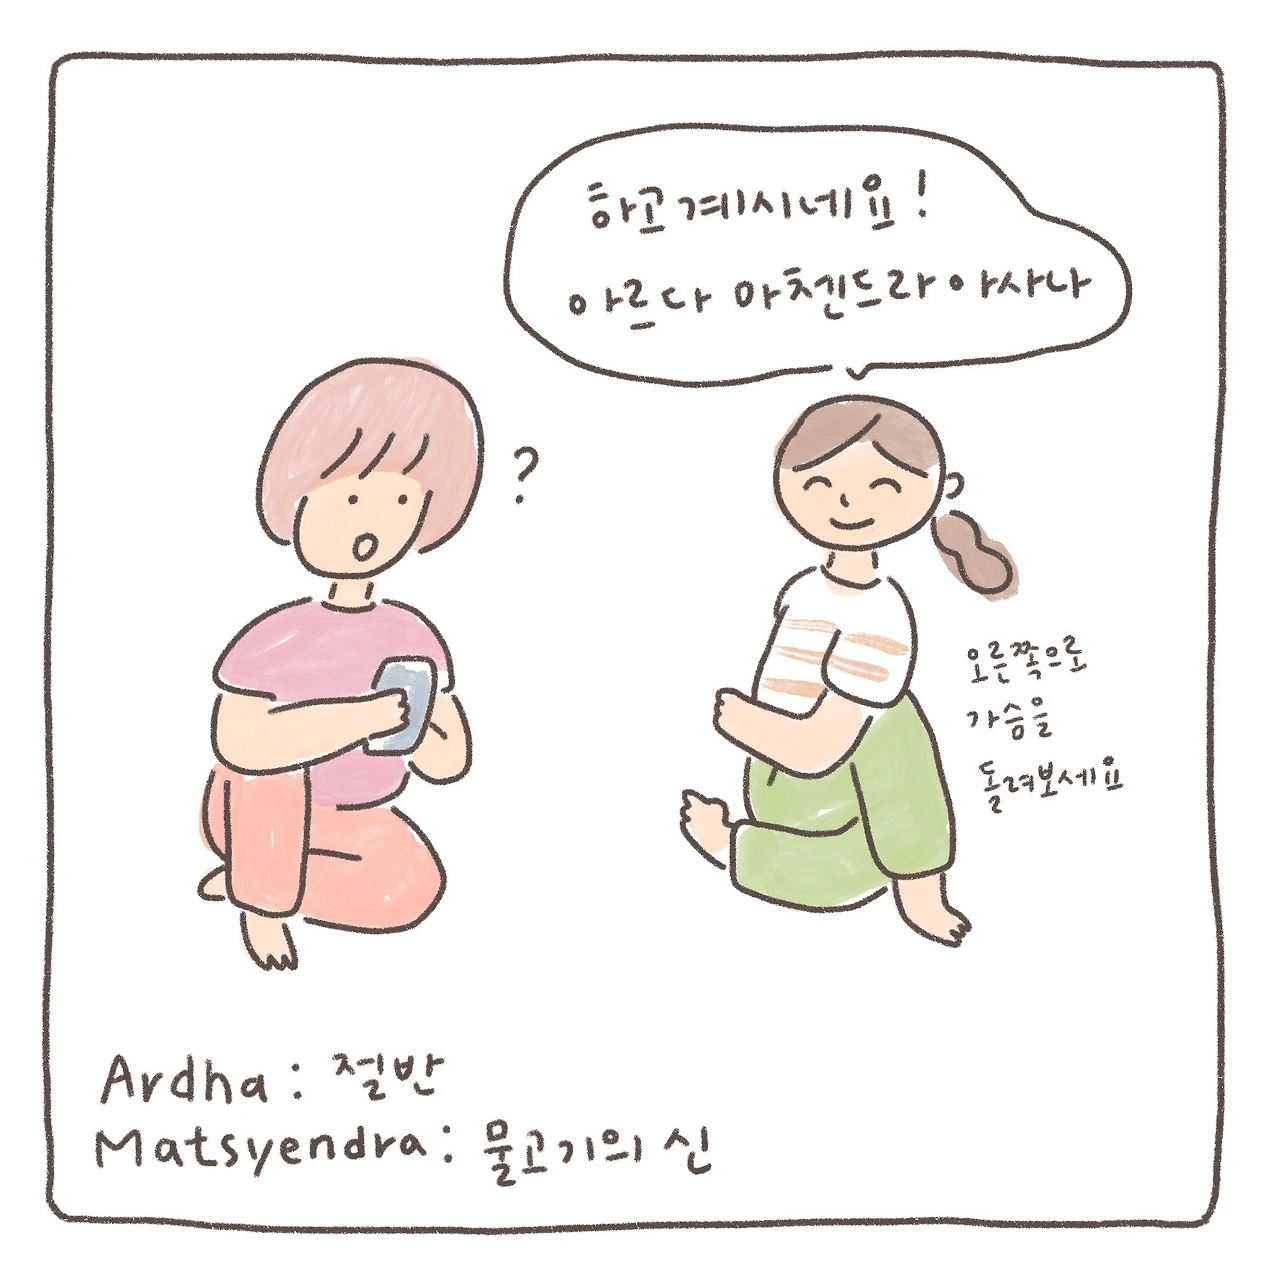 하고 계시네요!
아르다 마첸드라 아사나
?
오른쪽으로
가슴을
돌려보세요
Ardha : 절반
Matsyendra : 물고기의 신